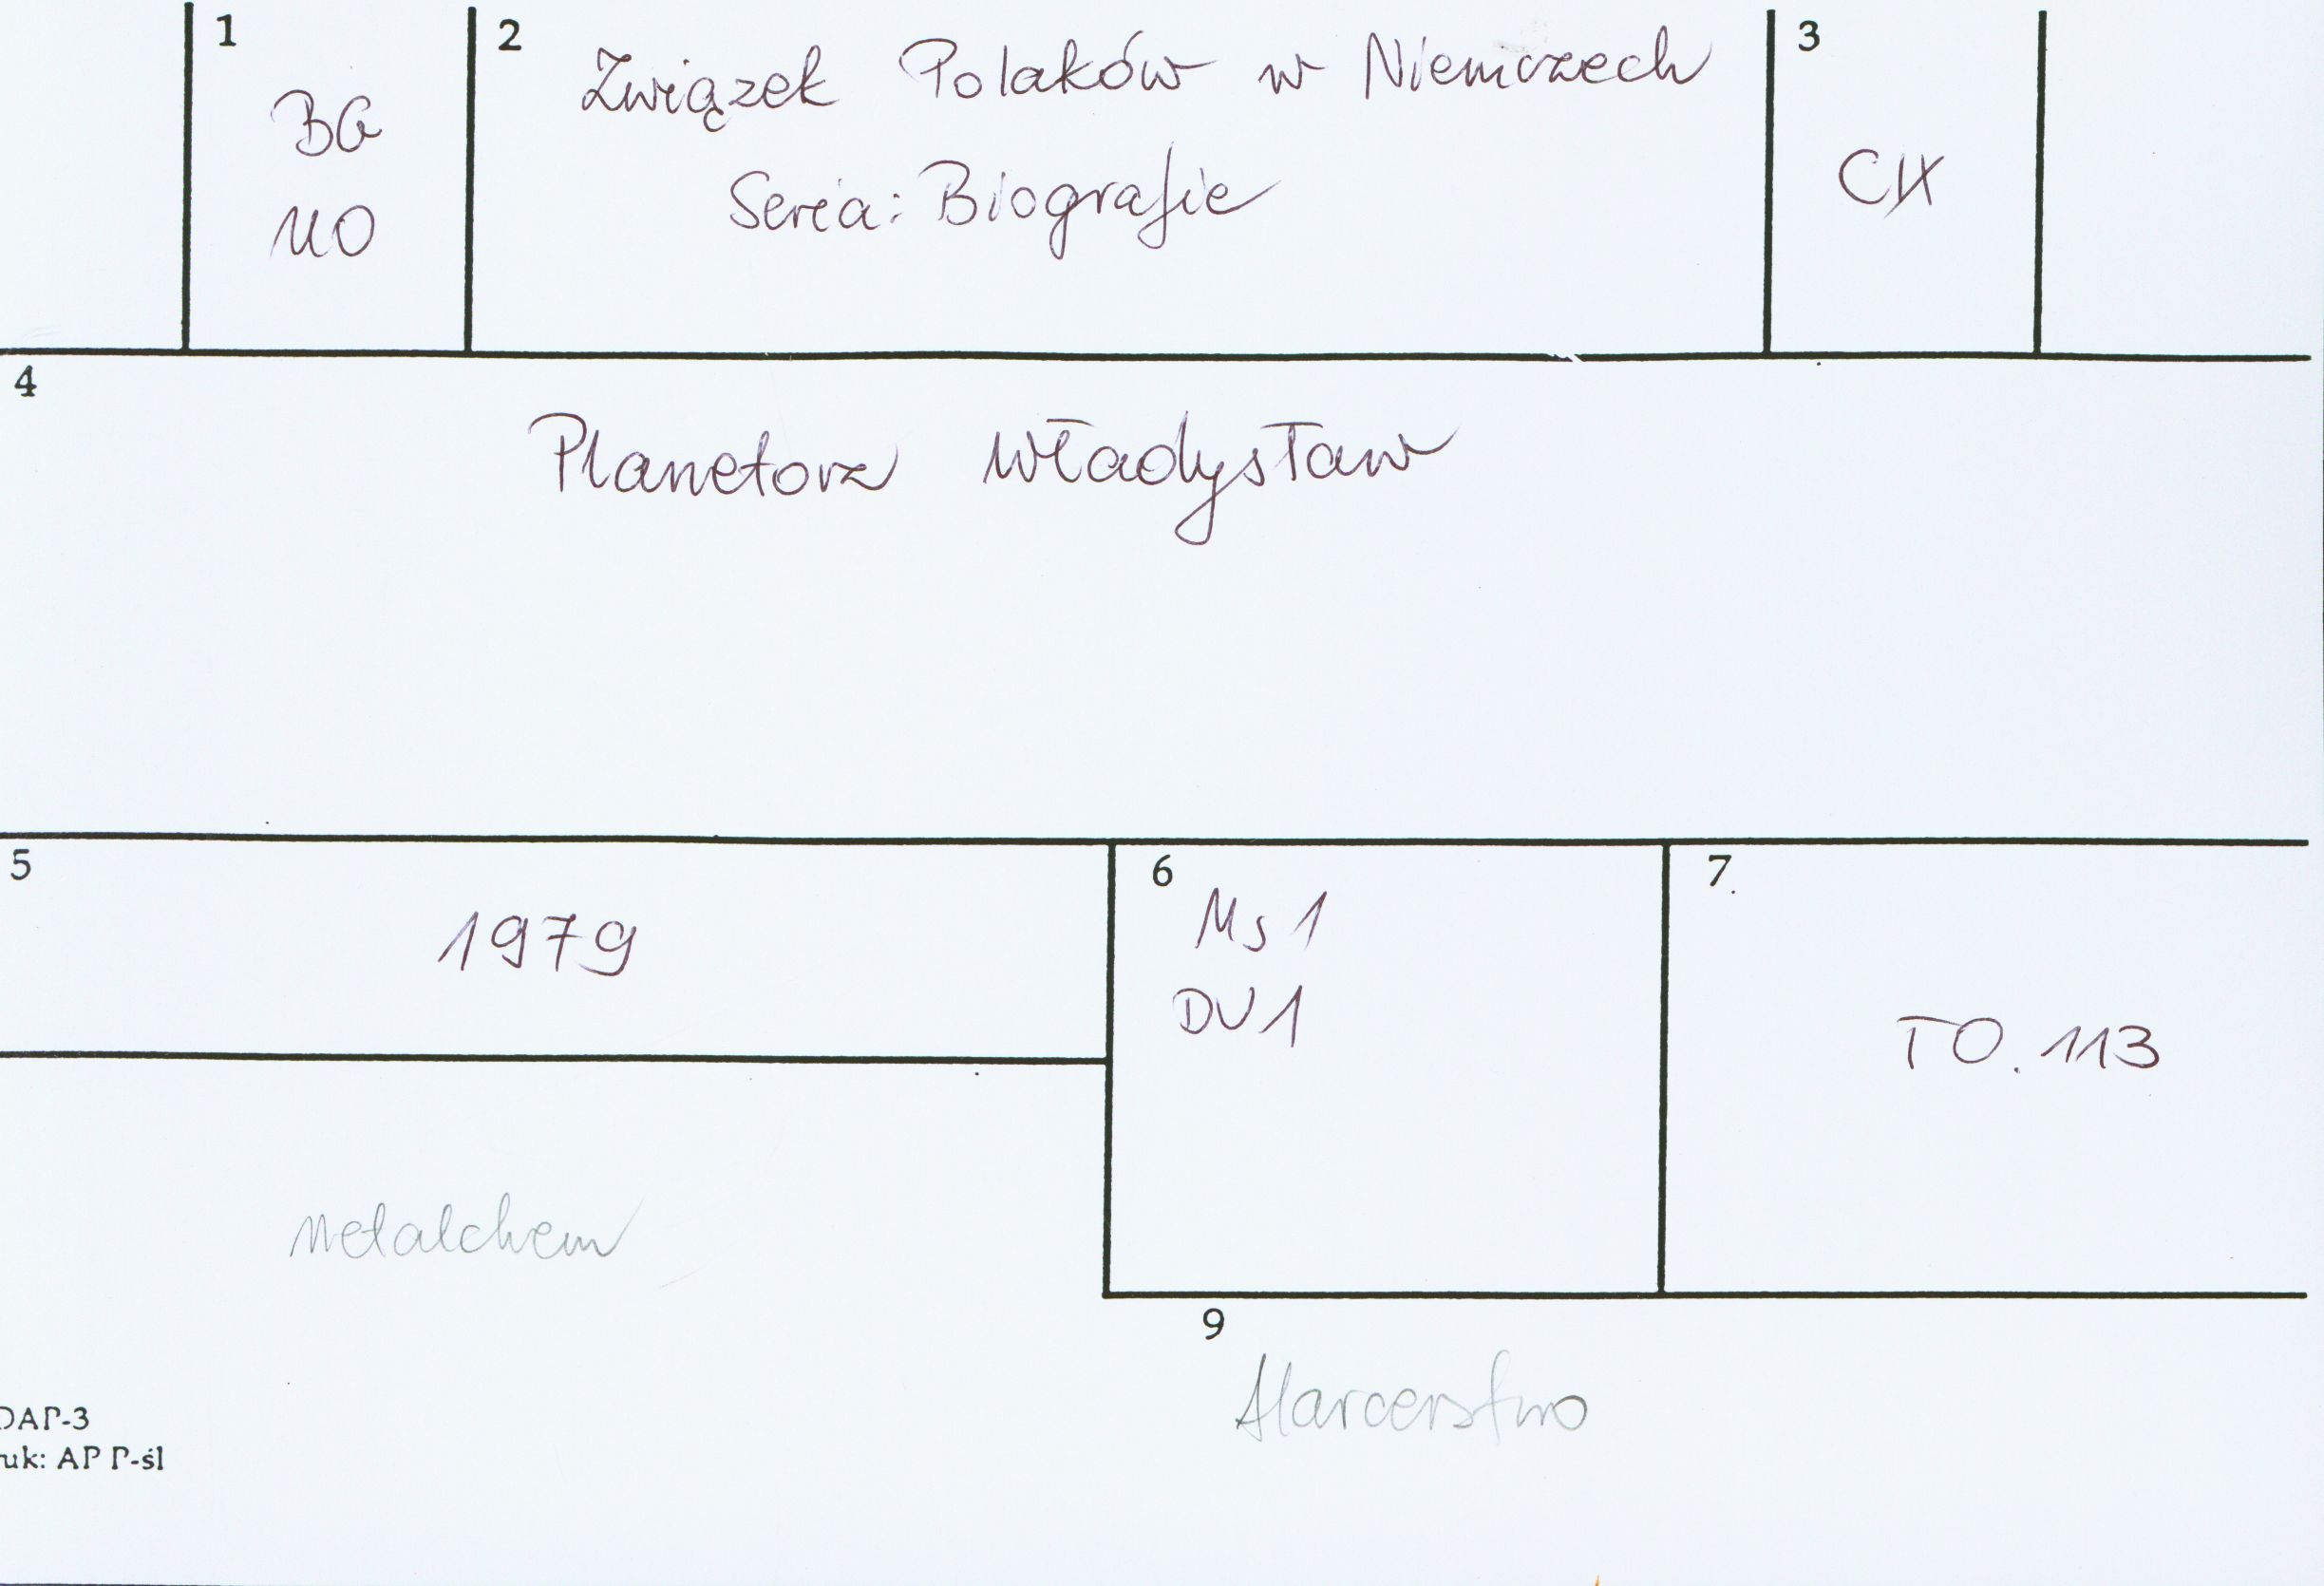 1
BG
MO
2
Związek Polaków w Niemczech
Seria: Biografie
3
4
Planetorz Władysław
5
1979
6
Ms 1
DV 1
7
TO. 113
Metalchem
9
Harcerstwo
DAP-3
uk: AP P-śl